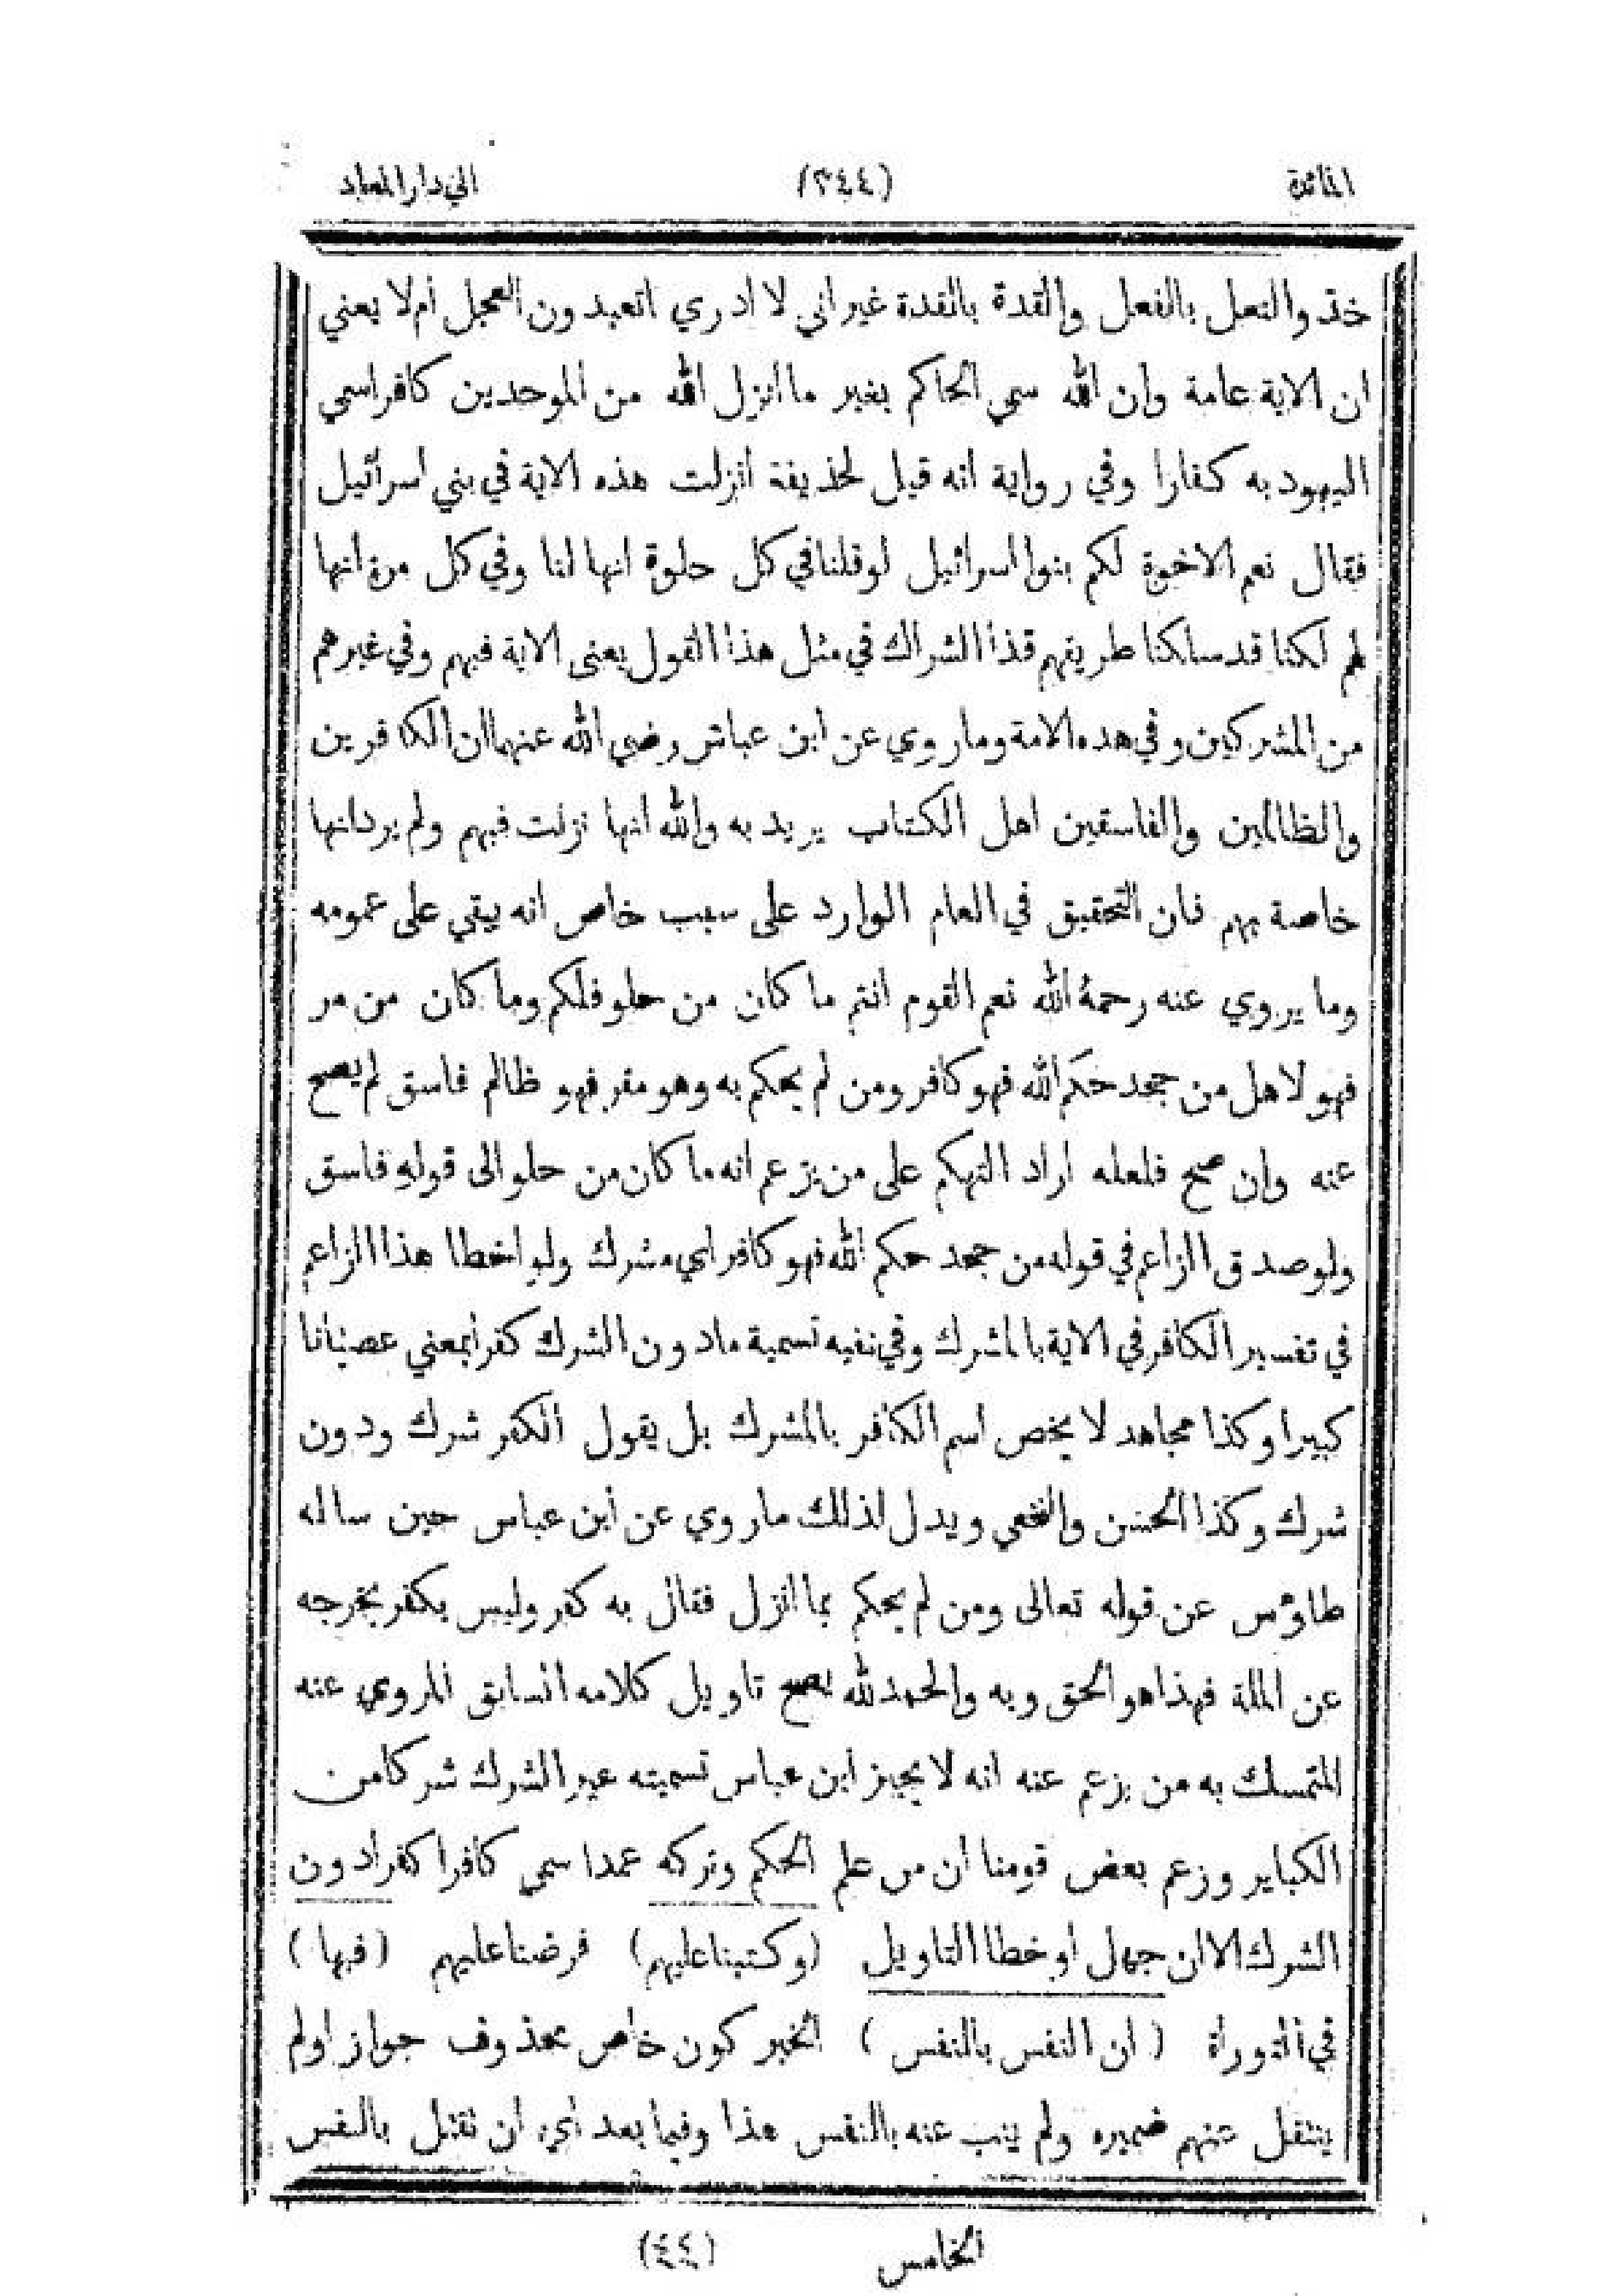 المائدة (٣٤٤) الى دار المعاد
خذ والنعل بالنعل والقدة بالقدة غير اني لا ادري اتعبدون العجل أم لا يعني
ان الاية عامة وان الله سمى الحاكم بغير ما انزل الله من الموحدين كافرا سمي
اليهود به كفارا وفي رواية انه قيل لحذيفة أنزلت هذه الاية في بني اسرائيل
فقال نعم الاخوة لكم بنوا اسرائيل لو قلنا في كل حلوة انها لنا وفي كل مرة انها
لهم لكنا قد سلكنا طريقهم قذ الشراك في مثل هذا القول يعني الاية فيهم وفي غيرهم
من المشركين وفي هذه الامة وما روي عن ابن عباس رضي الله عنهما ان الكافرين
والظالمين والفاسقين اهل الكتاب يريد به والله انها نزلت فيهم ولم يرد انها
خاصة بهم فان التحقيق في العام الوارد على سبب خاص انه يبقي على عمومه
وما يروي عنه رحمة الله نعم القوم انتم ما كان من حلو فلكم وما كان من مر
فهو لاهل من جحد حكم الله فهو كافر ومن لم يحكم به وهو مقر فهو ظالم فاسق لم يصح
عنه وان صح فلعله اراد التهكم على من يزعم انه ما كان من حلو الى قوله فاسق
ولو صدق الزاعم في قوله من جحد حكم الله فهو كافر اي مشرك ولو اخطا هذا الزاعم
في تفسير الكافر في الاية بالمشرك وفي نفيه تسمية ما دون الشرك كفرا بمعني عصيانا
كبيرا وكذا مجاهد لا يخص اسم الكافر بالمشرك بل يقول الكفر شرك ودون
شرك وكذا الحسن والنخعي ويدل لذلك ما روي عن ابن عباس حين ساله
طاوس عن قوله تعالى ومن لم يحكم بما انزل فقال به كفر وليس بكفر يخرجه
عن الملة فهذا هو الحق وبه والحمد لله نصحح تاويل كلامه السابق المروي عنه
المتمسك به من يزعم عنه انه لا يجيز ابن عباس تسميته غير الشرك شركا من
الكباير وزعم بعض قومنا ان من علم الحكم وتركه عمدا سمي كافرا كفرا دون
الشرك الا ان جهل او خطا التاويل (وكتبنا عليهم) فرضنا عليهم (فيها)
في التوراة (ان النفس بالنفس) الخبر كون خاص محذوف جوازا ولم
ينتقل عنهم ضميره ولم ينب عنه بالنفس هذا وفيما بعد اي ان تقتل بالنفس
الخامس (٤٤)